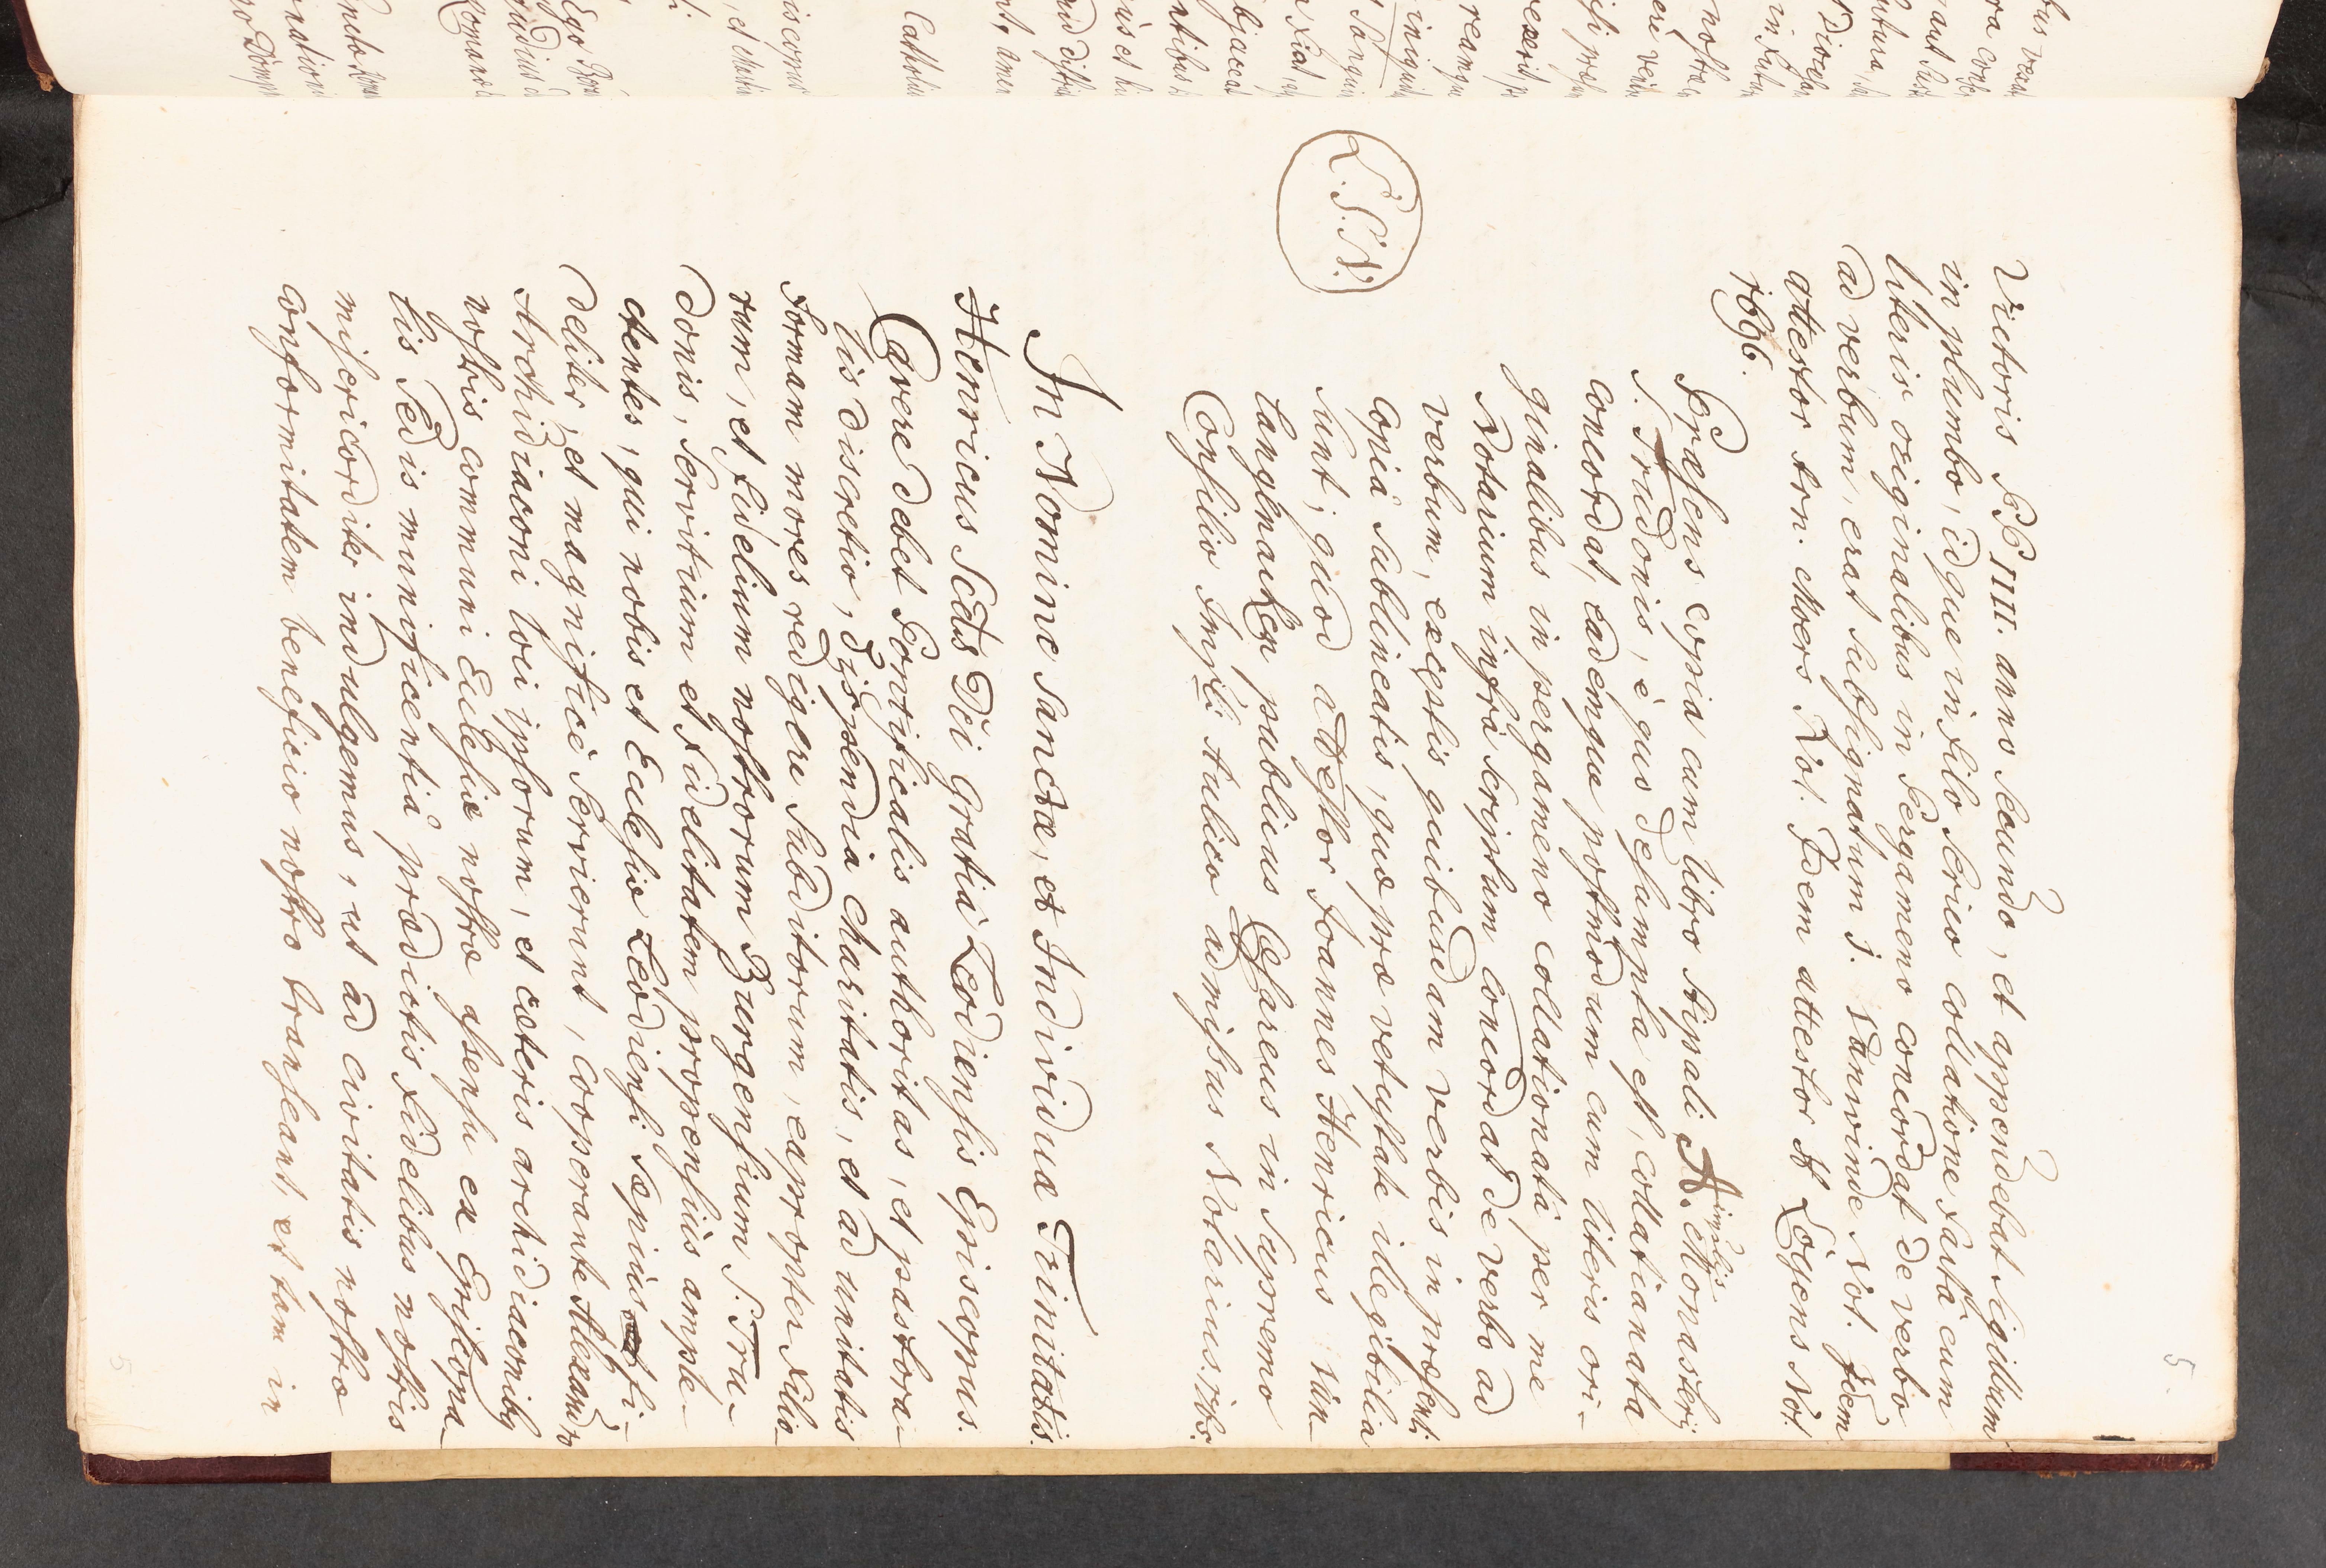 5
Victoris PP IIII. anno secundo, et appendebat sigillum
in plumbo, idque in filo serico collatione factâ cum
literis originalibus in Pergameno concordat de verbo
ad verbum, erat subsignatum J. Vanvinde Not. idem
attestor Arn. Moers Not. Idem attestor A Logens Not.
1696.
Præsens copia cum libro stipali A. simplis Monasterij
S. Trudonis, è quo desumpta est, collatianata
concordat, eademque postmodum cum literis ori-
ginalibus in pergameno collationata per me
Notarium infrà scriptum concordat de verbo ad
verbum, exceptis quibusdam verbis in præsenti
copiâ sublineatis, quæ præ vetustate illegibilia
sunt; quod attestor Joannes Henricus van-
Langhnaken publicus Cæsareus in supremo
Consilio Impli Aulico admissus Notarius mpp.
L.S.N.
In Nomine Sanctæ, et Individuæ Trinitatis.
Henricus Sctus Dei gratiâ Leodiensis Episcopus.
Cavere debet Pontificalis authoritas, et pastora-
lis discretio, dispendia charitatis, et ad unitatis
formam mores redigere subditorum, eapropter filio-
rum, et fidelium nostrorum Burgensium S. Tru-
donis, servitium et fidelitatem propensiùs ample-
ctentes, qui nobis et Ecclesiæ Leodiensi sæpius fi-
deliter, et magnificè servierunt, cooperante Alexandro
Archidiacono loci ipsorum, et cæteris archidiaconibus
nostris communi Ecclesiæ nostræ assensu ex Episcopa-
lis Sedis munificentiâ prædictis fidelibus nostris
misericorditer indulgemus, ut ad civitatis nostræ
conformitatem beneficio nostro transeant, et tam in
5